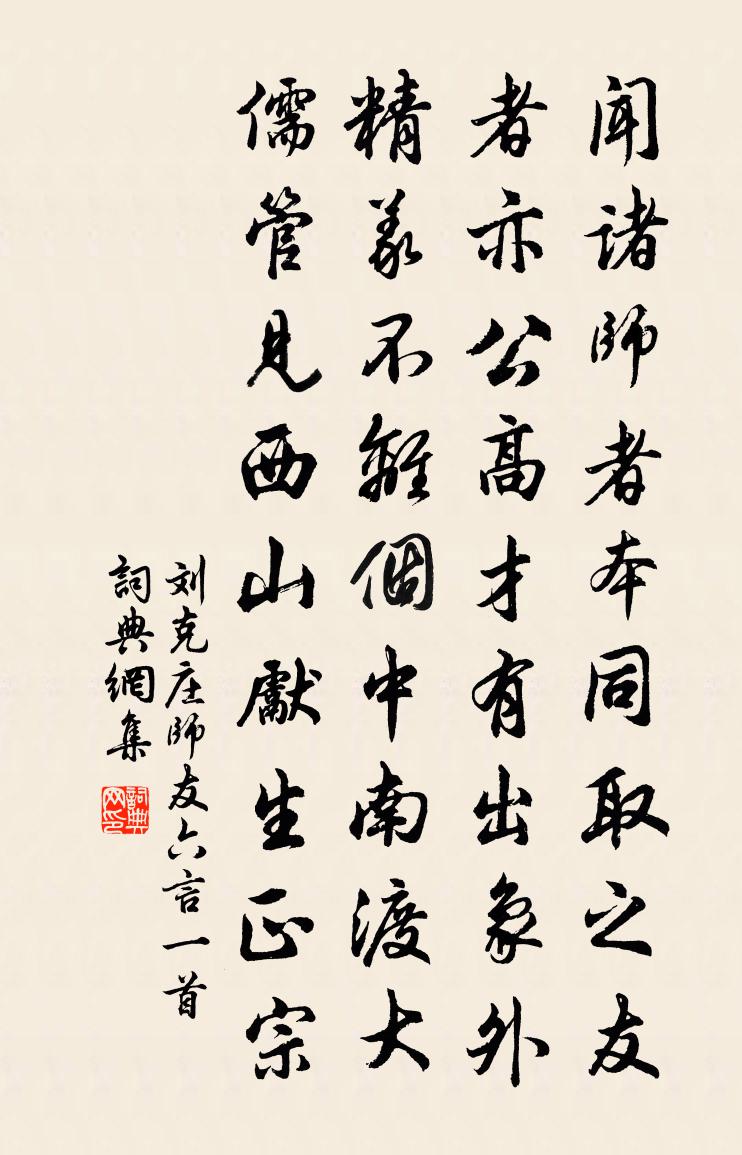 闻诸師者本同取之友
者亦公高才有出象外
精義不離個中南渡大
儒管見西山獻生正宗
刘克庄師友六言一首
詞典網集
詞典网印